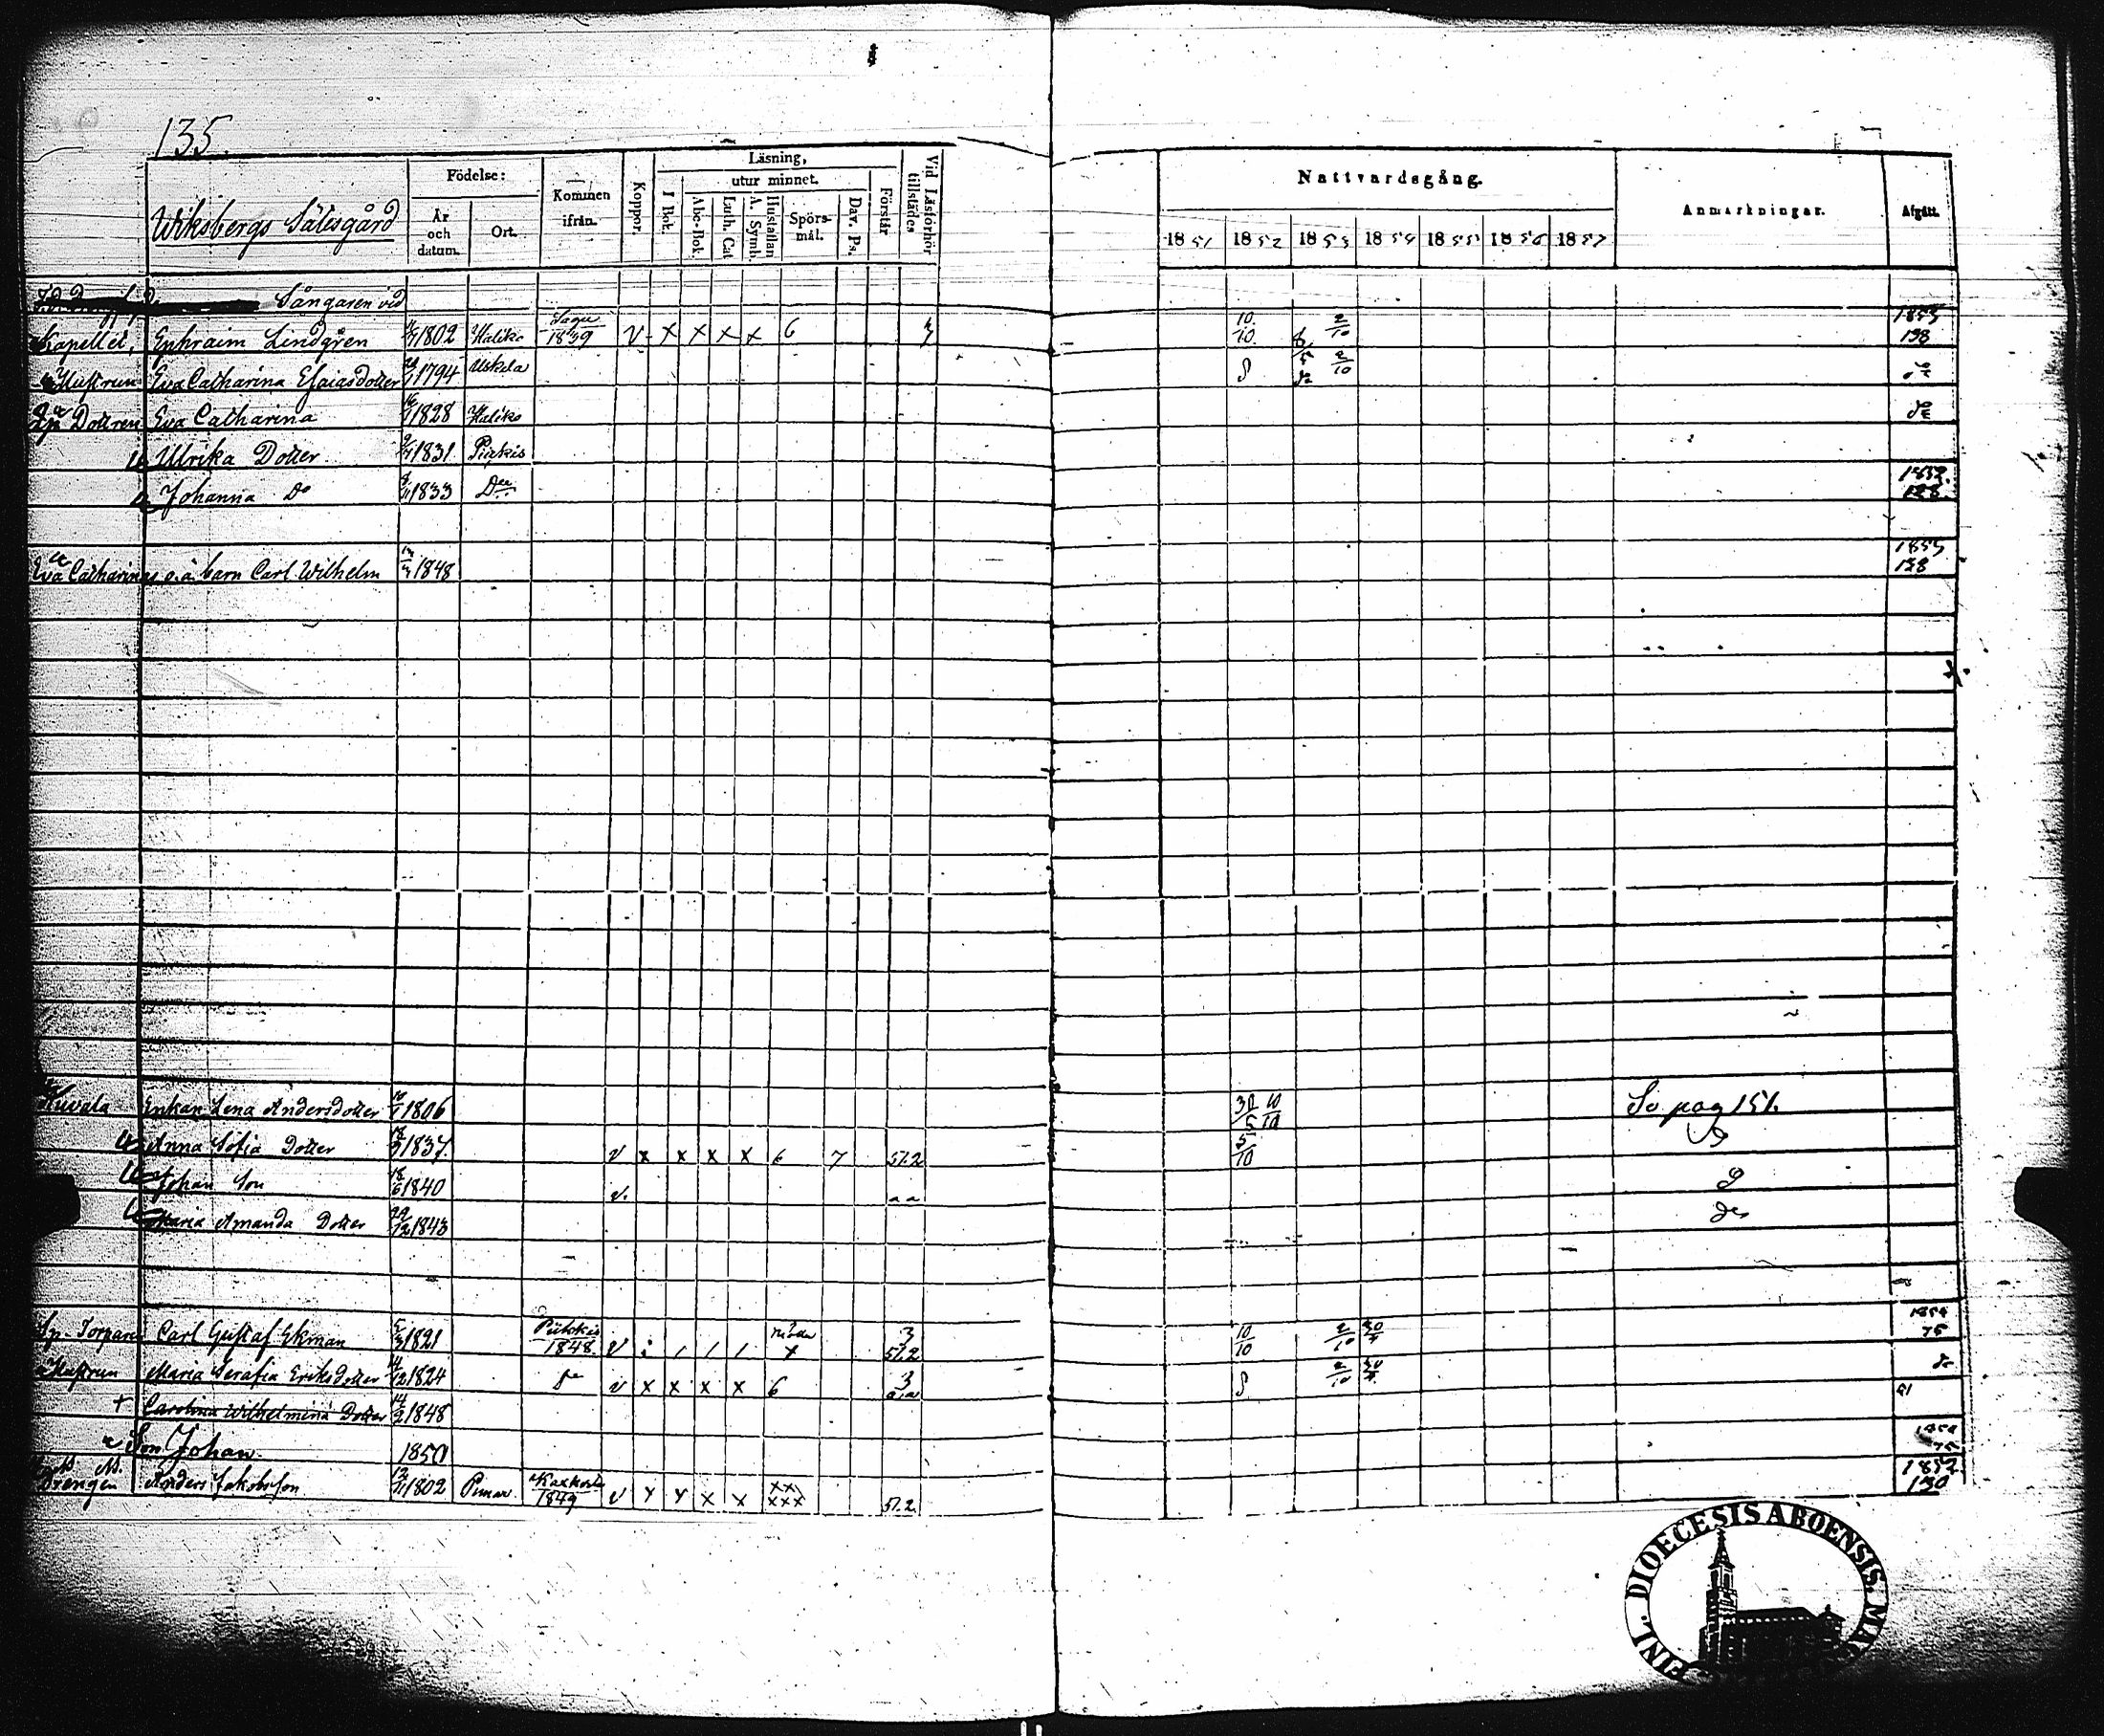 135.
Wiksbergs Sätesgård
Födelse:
År och datum.
Ort.
Kommen ifrån.
Koppor.
Läsning,
I Bok.
utur minnet.
Abc-Bok.
Luth. Cat
A. Symb.
Hustaflan
Spörsmål.
Dav. Ps.
Förstår
Vid Läsförhör tillstädes
Nattvardsgång.
1851 1852 1853 1854 1855 1856 1857
Anmärkningar.
Afgått.
Sångaren vid
Kapellet, Ephraim Lindgren 1802 Haliko Sagu 1839 v x x x x 6 10/10 2/10 1853 138
Hustrun Eva Catharina Esaiasdotter 1794 Uskela 2/10
Dottren Eva Catharina 1828 Haliko
Ulrika Dotter 9/4 1831 Piikkis
Johanna Do 1833 1852. 128.
Eva Catharinas o.ä. barn Carl Wilhelm 1848 1853 128
Kuvala Enkan Lena Andersdotter 1806 30/5 10/10 Se pag 151.
Anna Sofia Dotter 1837. v x x x x 6 7 51.2 5/10
Johan Son 18/6 1840 v. a a
Maria Amanda Dotter 29/12 1843
Torparen Carl Gustaf Ekman 1821 Piikkis 1848. v x 3 51.2 10/10 2/10 1854 75
Hustrun Maria Serafia Eriksdotter 1824 v x x x x 6 3 a.a 2/10
† Carolina Wilhelmina Dotter 14/2 1848 51
Son Johan. 1850 1854 75
Drengen Anders Jakobsson 1802 Pemar 1849 v x x x x xx xxx 51.2 1852 130
FINL. DIOECESIS ABOENSIS. MA